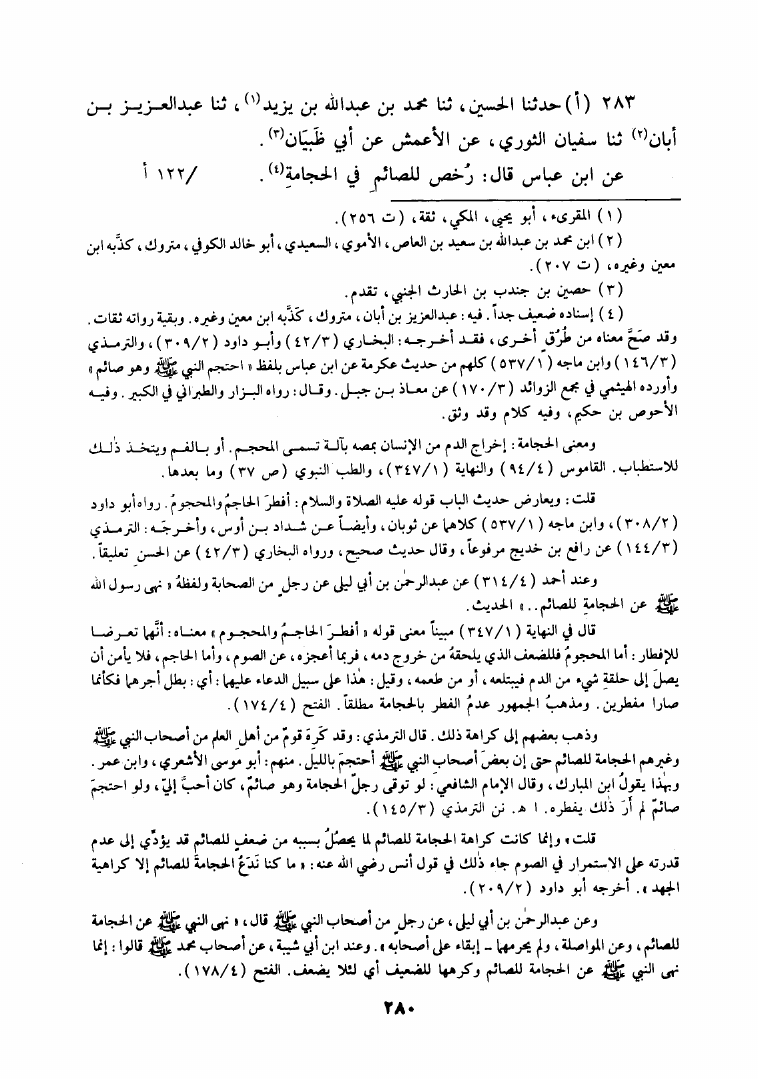 ٢٨٣ (أ) حدثنا الحسين، ثنا محمد بن عبدالله بن يزيد(١)، ثنا عبدالعـزيـز بـن
أبان(٢) ثنا سفيان الثوري، عن الأعمش عن أبي ظَبيَان(٣).
عن ابن عباس قال: رُخص للصائمِ في الحجامةِ(٤). /١٢٢ أ
(١) المقرىء، أبو يحيى، المكي، ثقة، (ت ٢٥٦).
(٢) ابن محمد بن عبدالله بن سعيد بن العاص، الأموي، السعيدي، أبو خالد الكوفي، متروك، كذَّبه ابن
معين وغيره، (ت ٢٠٧).
(٣) حصين بن جندب بن الحارث الجنبي، تقدم.
(٤) إسناده ضعيف جداً. فيه: عبدالعزيز بن أبان، متروك، كَذَّبه ابن معين وغيره. وبقية رواته ثقات.
وقد صَحَّ معناه من طُرُقٍ أخرى، فقـد أخرجـه: البخاري (٤٢/٣) وأبـو داود (٣٠٩/٢)، والترمـذي
(١٤٦/٣) وابن ماجه (٥٣٧/١) كلهم من حديث عكرمة عن ابن عباس بلفظ « احتجم النبي ﷺ وهو صائم »
وأورده الهيثمي في مجمع الزوائد (١٧٠/٣) عن معـاذ بـن جبـل. وقـال: رواه البـزار والطبراني في الكبير. وفيـه
الأحوص بن حكيم، وفيه كلام وقد وثق.
ومعنى الحجامة: إخراج الدم من الإنسان بمصه بآلـة تسمـى المحجـم. أو بـالفـم ويتخـذ ذلـك
للاستطباب. القاموس (٩٤/٤) والنهاية (٣٤٧/١)، والطب النبوي (ص ٣٧) وما بعدها.
قلت: ويعارض حديث الباب قوله عليه الصلاة والسلام: أفطرَ الحاجمُ والمحجومُ. رواه أبو داود
(٣٠٨/٢)، وابن ماجه (٥٣٧/١) كلاهما عن ثوبان، وأيضـاً عـن شـداد بـن أوس، وأخـرجَـه: الترمـذي
(١٤٤/٣) عن رافع بن خديج مرفوعاً، وقال حديث صحيح، ورواه البخاري (٤٢/٣) عن الحسنِ تعليقاً.
وعند أحمد (٣١٤/٤) عن عبدالرحمٰن بن أبي ليلى عن رجلٍ من الصحابة ولفظهُ « نهى رسول الله
ﷺ عن الحجامةِ للصائم.. » الحديث.
قال في النهاية (٣٤٧/١) مبيناً معنى قوله « أفطـرَ الحاجـمُ والمحجـوم » معنـاه: أنَّهما تعـرضـا
للإفطار: أما المحجومُ فللضعف الذي يلحقهُ من خروج دمه، فربما أعجزه، عن الصوم، وأما الحاجم، فلا يأمن أن
يصلَ إلى حلقةِ شيء من الدم فيبتلعه، أو من طعمه، وقيل: هذا على سبيل الدعاء عليهما: أي: بطل أجرهما فكأنما
صارا مفطرين. ومذهبُ الجمهور عدمُ الفطر بالحجامة مطلقاً. الفتح (١٧٤/٤).
وذهب بعضهم إلى كراهة ذلك. قال الترمذي: وقد كَرِهَ قومٌ من أهلِ العلم من أصحاب النبي ﷺ
وغيرهم الحجامة للصائم حتى إن بعضَ أصحابِ النبي ﷺ أحتجمَ بالليل. منهم: أبو موسى الأشعري، وابن عمر.
وبهٰذا يقولُ ابن المبارك، وقال الإمام الشافعي: لو توقى رجلٌ الحجامة وهو صائمٌ، كان أحبَّ إليَّ، ولو احتجمَ
صائمٌ لم أرَ ذٰلك يفطره. ا هـ. نن الترمذي (١٤٥/٣).
قلت» وإنما كانت كراهة الحجامة للصائم لما يحصُلُ بسببه من ضعفٍ للصائم قد يؤدِّي إلى عدم
قدرته على الاستمرار في الصوم جاء ذٰلك في قول أنس رضي الله عنه: « ما كنا نَدَعُ الحجامةَ للصائم إلا كراهية
الجهد ». أخرجه أبو داود (٢٠٩/٢).
وعن عبدالرحمٰن بن أبي ليلى، عن رجلٍ من أصحاب النبي ﷺ قال، « نهى النبي ﷺ عن الحجامة
للصائم، وعن المواصلة، ولم يحرمهما - إبقاء على أصحابه ». وعند ابن أبي شيبة، عن أصحاب محمد ﷺ قالوا: إنما
نهى النبي ﷺ عن الحجامة للصائم وكرهها للضعيف أي لئلا يضعف. الفتح (١٧٨/٤).
٢٨٠